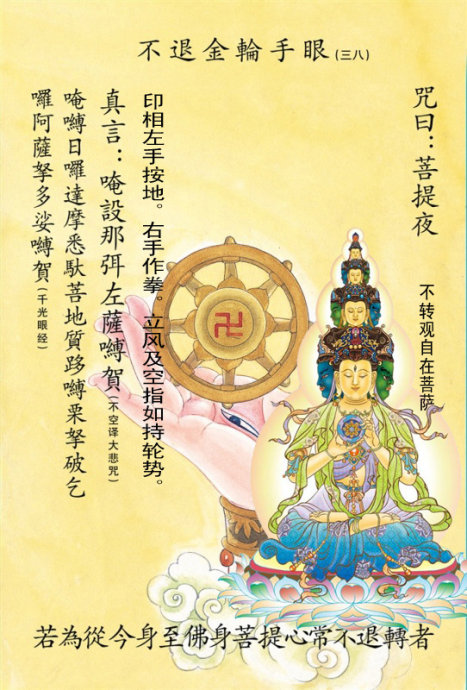 不退金輪手眼(三八)
咒曰：菩提夜
不转观自在菩萨
印相左手按地。右手作拳。立风及空指如持轮势。
真言：唵設那弭左薩嚩賀(不空译大悲咒)
唵嚩日囉達摩悉馱菩地質跢嚩栗拏破乞
囉阿薩拏多娑嚩賀(千光眼经)
若為從今身至佛身菩提心常不退轉者